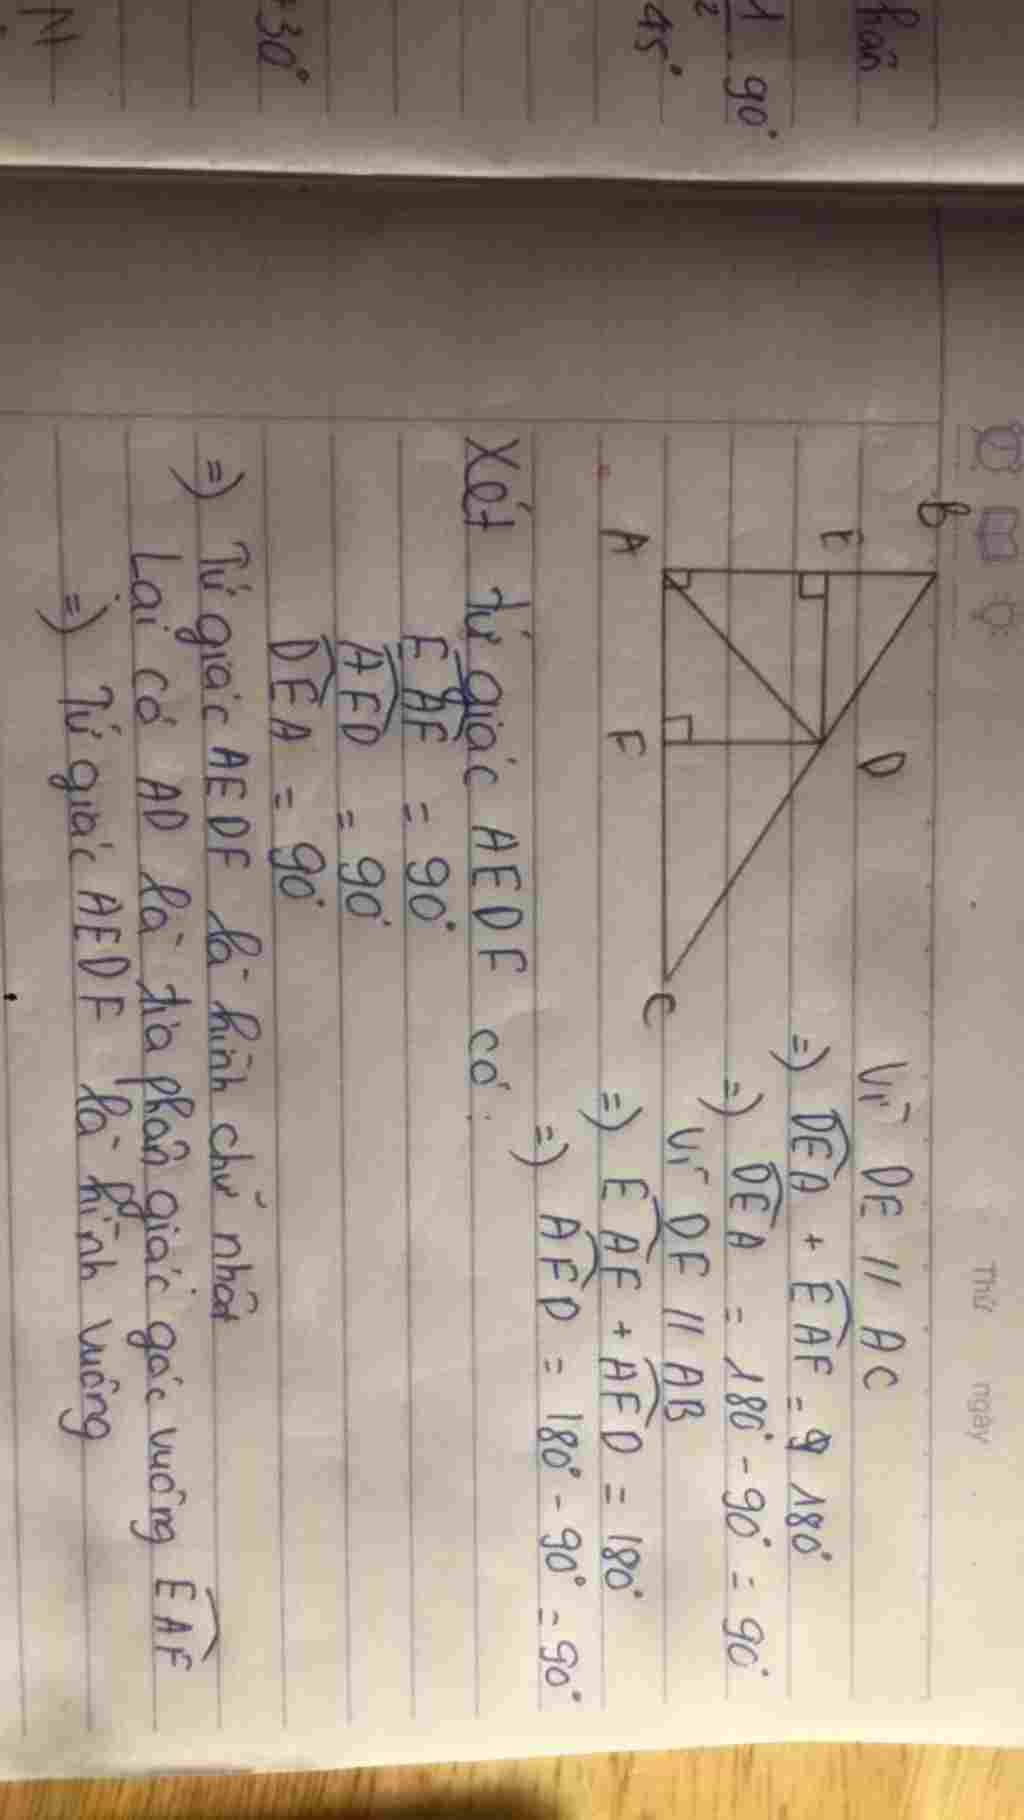 hân
1/2 . 90°
45°
+30°
N
Thứ ngày
B
E
D
A
F
C
Vì DE // AC
=) DEA + EAF = 180°
=) DEA = 180° - 90° = 90°
Vì DF // AB
=) EAF + AFD = 180°
=) AFD = 180° - 90° = 90°
Xét tứ giác AEDF có:
EAF = 90°
AFD = 90°
DEA = 90°
=) Tứ giác AEDF là hình chữ nhật
Lại có AD là tia phân giác góc vuông EAF
=) Tứ giác AEDF là hình vuông